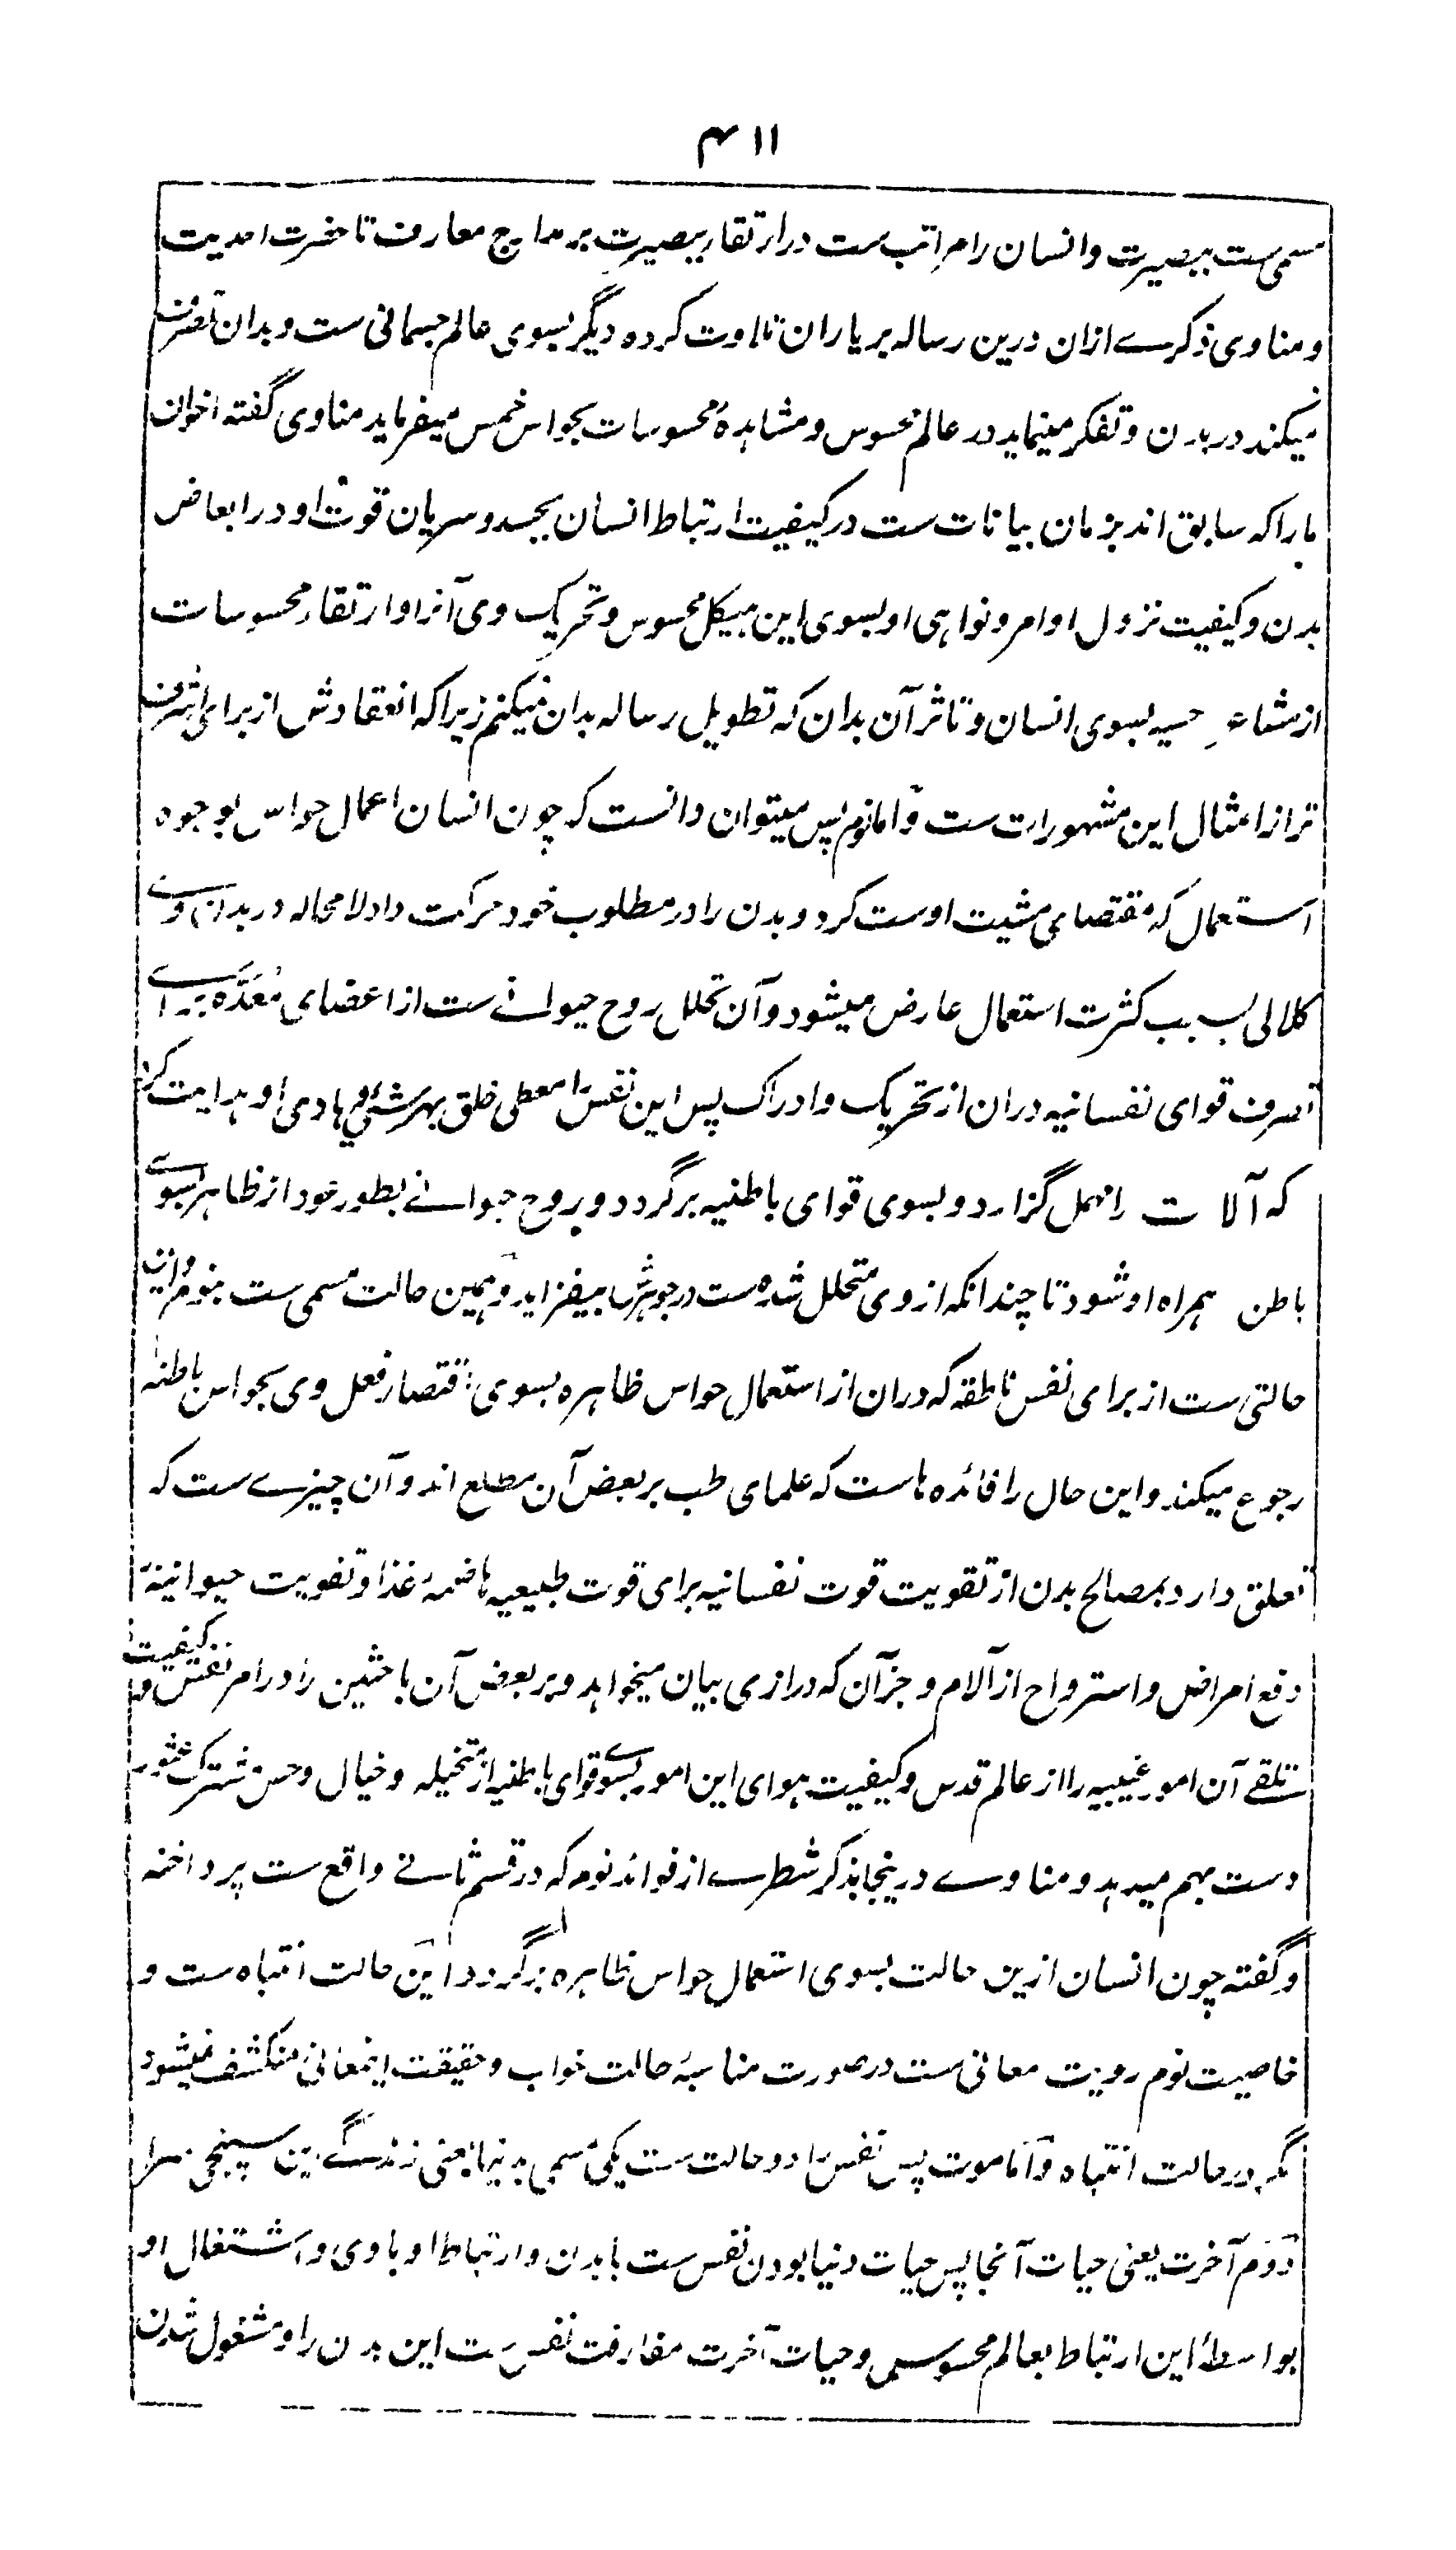 ۴۱۱
مسمی ست ببصیرت وانسان را مراتب ست در ارتقا ببصیرت بر مدارج معارف تا حضرت احدیت
و مناوی ذکرے ازان درین رساله بر یاران تلاوت کرده دیگر بسوی عالم جسمانی ست و بدان تصرف
میکند در بدن و تفکر مینماید در عالم محسوس و مشاهدهٔ محسوسات بحواس خمس میفرماید مناوی گفته اخوان
ما را که سابق اند بزمان بیانات ست در کیفیت ارتباط انسان بجسد و سریان قوت او در ابعاض
بدن و کیفیت نزول اوامر و نواهی او بسوی این هیکل محسوس و تحریک وی آنرا و ارتقاء محسوسات
از مشاعر حسیه بسوی انسان و تاثر آن بدان که تطویل رساله بدان نمیکنم زیرا که انعقادش از برای اشرف
تر از امثال این مشهورات ست و اما نوم پس میتوان دانست که چون انسان اعمال حواس بوجوه
استعمال که مقتضای مشیت اوست کرد و بدن را در مطلوب خود حرکت داد لا محاله در بدن وے
کلالی بسبب کثرت استعمال عارض میشود و آن تحلل روح حیوانے ست از اعضای مُعَدَّه براے
تصرف قوای نفسانیه دران از تحریک و ادراک پس این نفس را معطی خلق بهر شئی و هادی او هدایت کرد
که آلات را مهمل گزارد و بسوی قوای باطنیه برگردد و روح حیوانے بطور خود از ظاهر بسوے
باطن همراه او شود تا چندانکه از وی متحلل شده ست در جوهرش بیفزاید و همین حالت مسمی ست بنوم و این
حالتی ست از برای نفس ناطقه که دران از استعمال حواس ظاهره بسوی اقتصار فعل وی بحواس باطنه
رجوع میکند و این حال را فائده هاست که علمای طب بر بعض آن مطلع اند و آن چیزے ست که
تعلق دارد بمصالح بدن از تقویت قوت نفسانیه برای قوت طبیعیه هاضمهٔ غذا و تقویت حیوانیهٔ
دفع امراض و استرواح از آلام و جز آن که درازی بیان میخواهد و بر بعض آن باحثین را در امر نفس و کیفیت
تلقے آن امور غیبیه را از عالم قدس و کیفیت هوای این امور بسوے قوای باطنیه از متخیله و خیال و حس مشترک عثور
دست بهم میدهد و مناوے درینجا بذکر شطرے از فوائد نوم که در قسم ثانے واقع ست پرداخته
و گفته چون انسان ازین حالت بسوی استعمال حواس ظاهره برگردد این حالت انتباه ست و
خاصیت نوم رویت معانی ست در صورت مناسبهٔ حالت خواب و حقیقت اینمعانی منکشف نمیشود
مگر در حالت انتباه و اما موت پس نفس را دو حالت ست یکی مسمی بدنیا یعنی زندگے این سپنجی سرا
دوم آخرت یعنی حیات آنجا پس حیات دنیا بودن نفس ست با بدن و ارتباط او با وی و اشتغال او
بواسطهٔ این ارتباط بعالم محسوس و حیات آخرت مفارقت نفس ست این بدن را و مشغول شدن